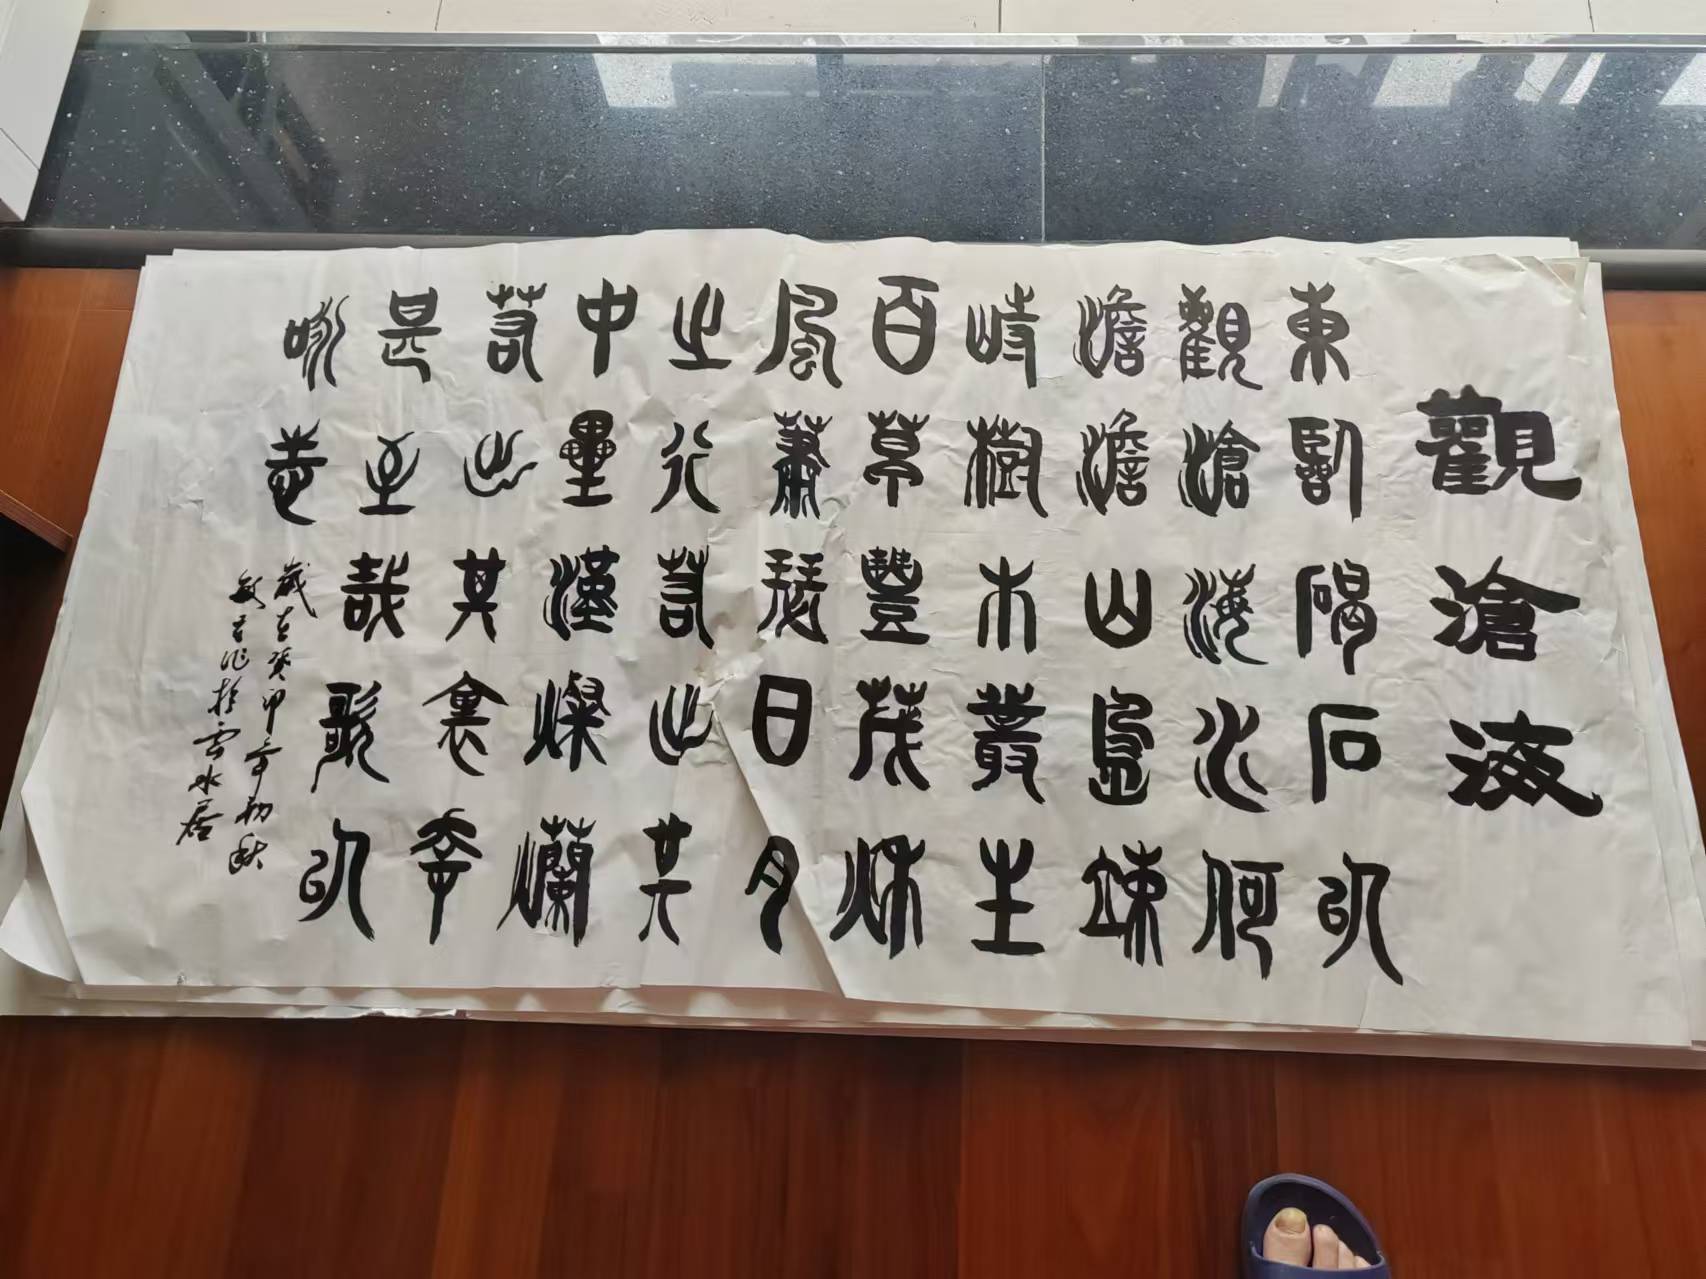 觀滄海
東臨碣石以
觀滄海水何
澹澹山島竦
峙樹木叢生
百草豐茂秋
風蕭瑟日月
之行若出其
中星漢燦爛
若出其裏幸
甚至哉歌以
詠志
歲在癸卯年初秋
作於雲水居